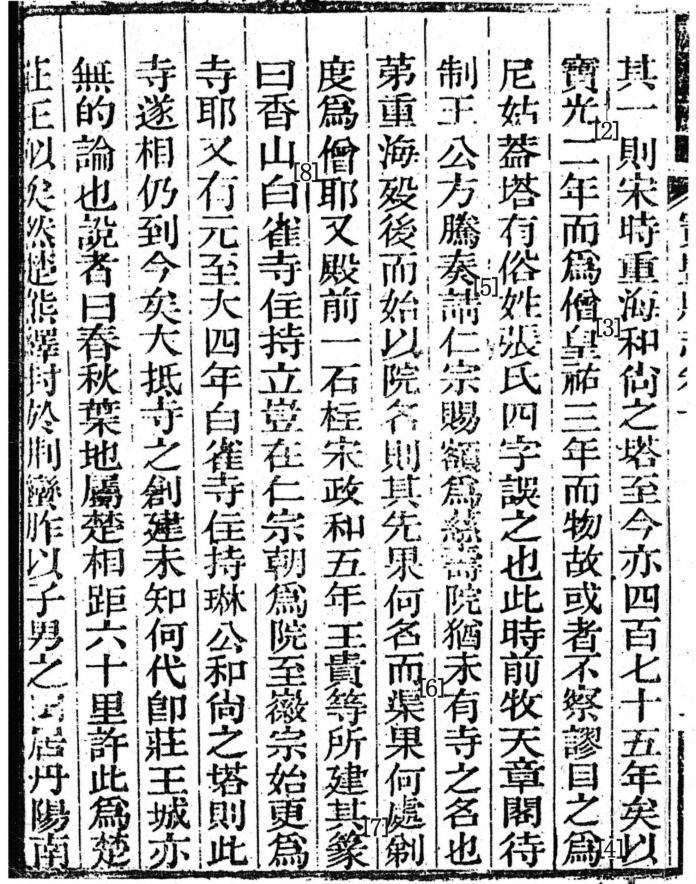 其一則宋時重海和尙之塔至今亦四百七十五年矣以
寶光[2]二年而爲僧[3]皇祐三年而物故或者不察謬目之爲[4]
尼姑蓋塔有俗姓張氏四字誤之也此時前牧天章閣待
制王公方騰奏[5]請仁宗賜額爲慈壽院猶未有寺之名也
第重海歿後而始以院名則其先果何名而[6]渠果何處剃
度爲僧耶又殿前一石柱宋政和五年王貴等所建其[7]篆
曰香山[8]白雀寺住持立豈在仁宗朝爲院至徽宗始更爲
寺耶又有元至大四年白雀寺住持琳公和尙之塔則此
寺遂相仍到今矣大抵寺之創建未知何代卽莊王城亦
無的論也說者曰春秋葉地屬楚相距六十里許此爲楚
莊王似矣然楚熊繹封於荆蠻胙以子男之田居丹陽南